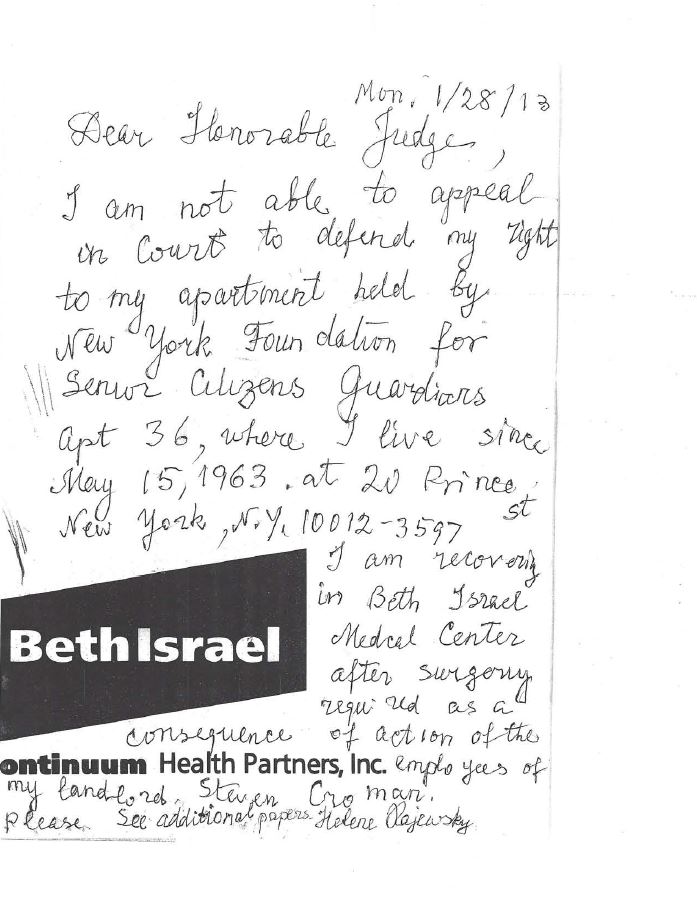 Mon. 1/28/13
Dear Honorable Judge,
I am not able to appeal
in Court to defend my right
to my apartment held by
New York Foundation for
Senior Citizens Guardians
Apt 36, where I live since
May 15, 1963. at 20 Prince
st
New York, N.Y. 10012-3597
I am recovering
in Beth Israel
Medcal Center
after surgery
required as a
consequence of action of the
Beth Israel
ontinuum Health Partners, Inc. employees of
my landlord, Steven Croman.
Please See additional papers Helene